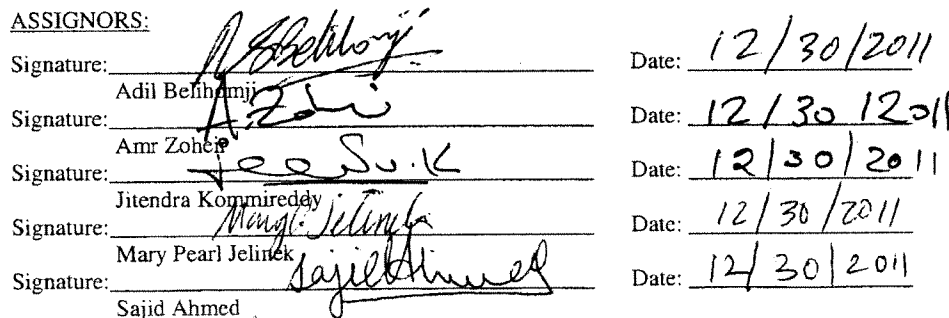 ASSIGNORS:
Signature: A Belihomji Date: 12/30/2011
Adil Belihomji
Signature: A. Zohei Date: 12/30/2011
Amr Zoheir
Signature: Jee Su. K Date: 12/30/2011
Jitendra Kommireddy
Signature: Mary P. Jelinek Date: 12/30/2011
Mary Pearl Jelinek
Signature: Sajid Ahmed Date: 12/30/2011
Sajid Ahmed